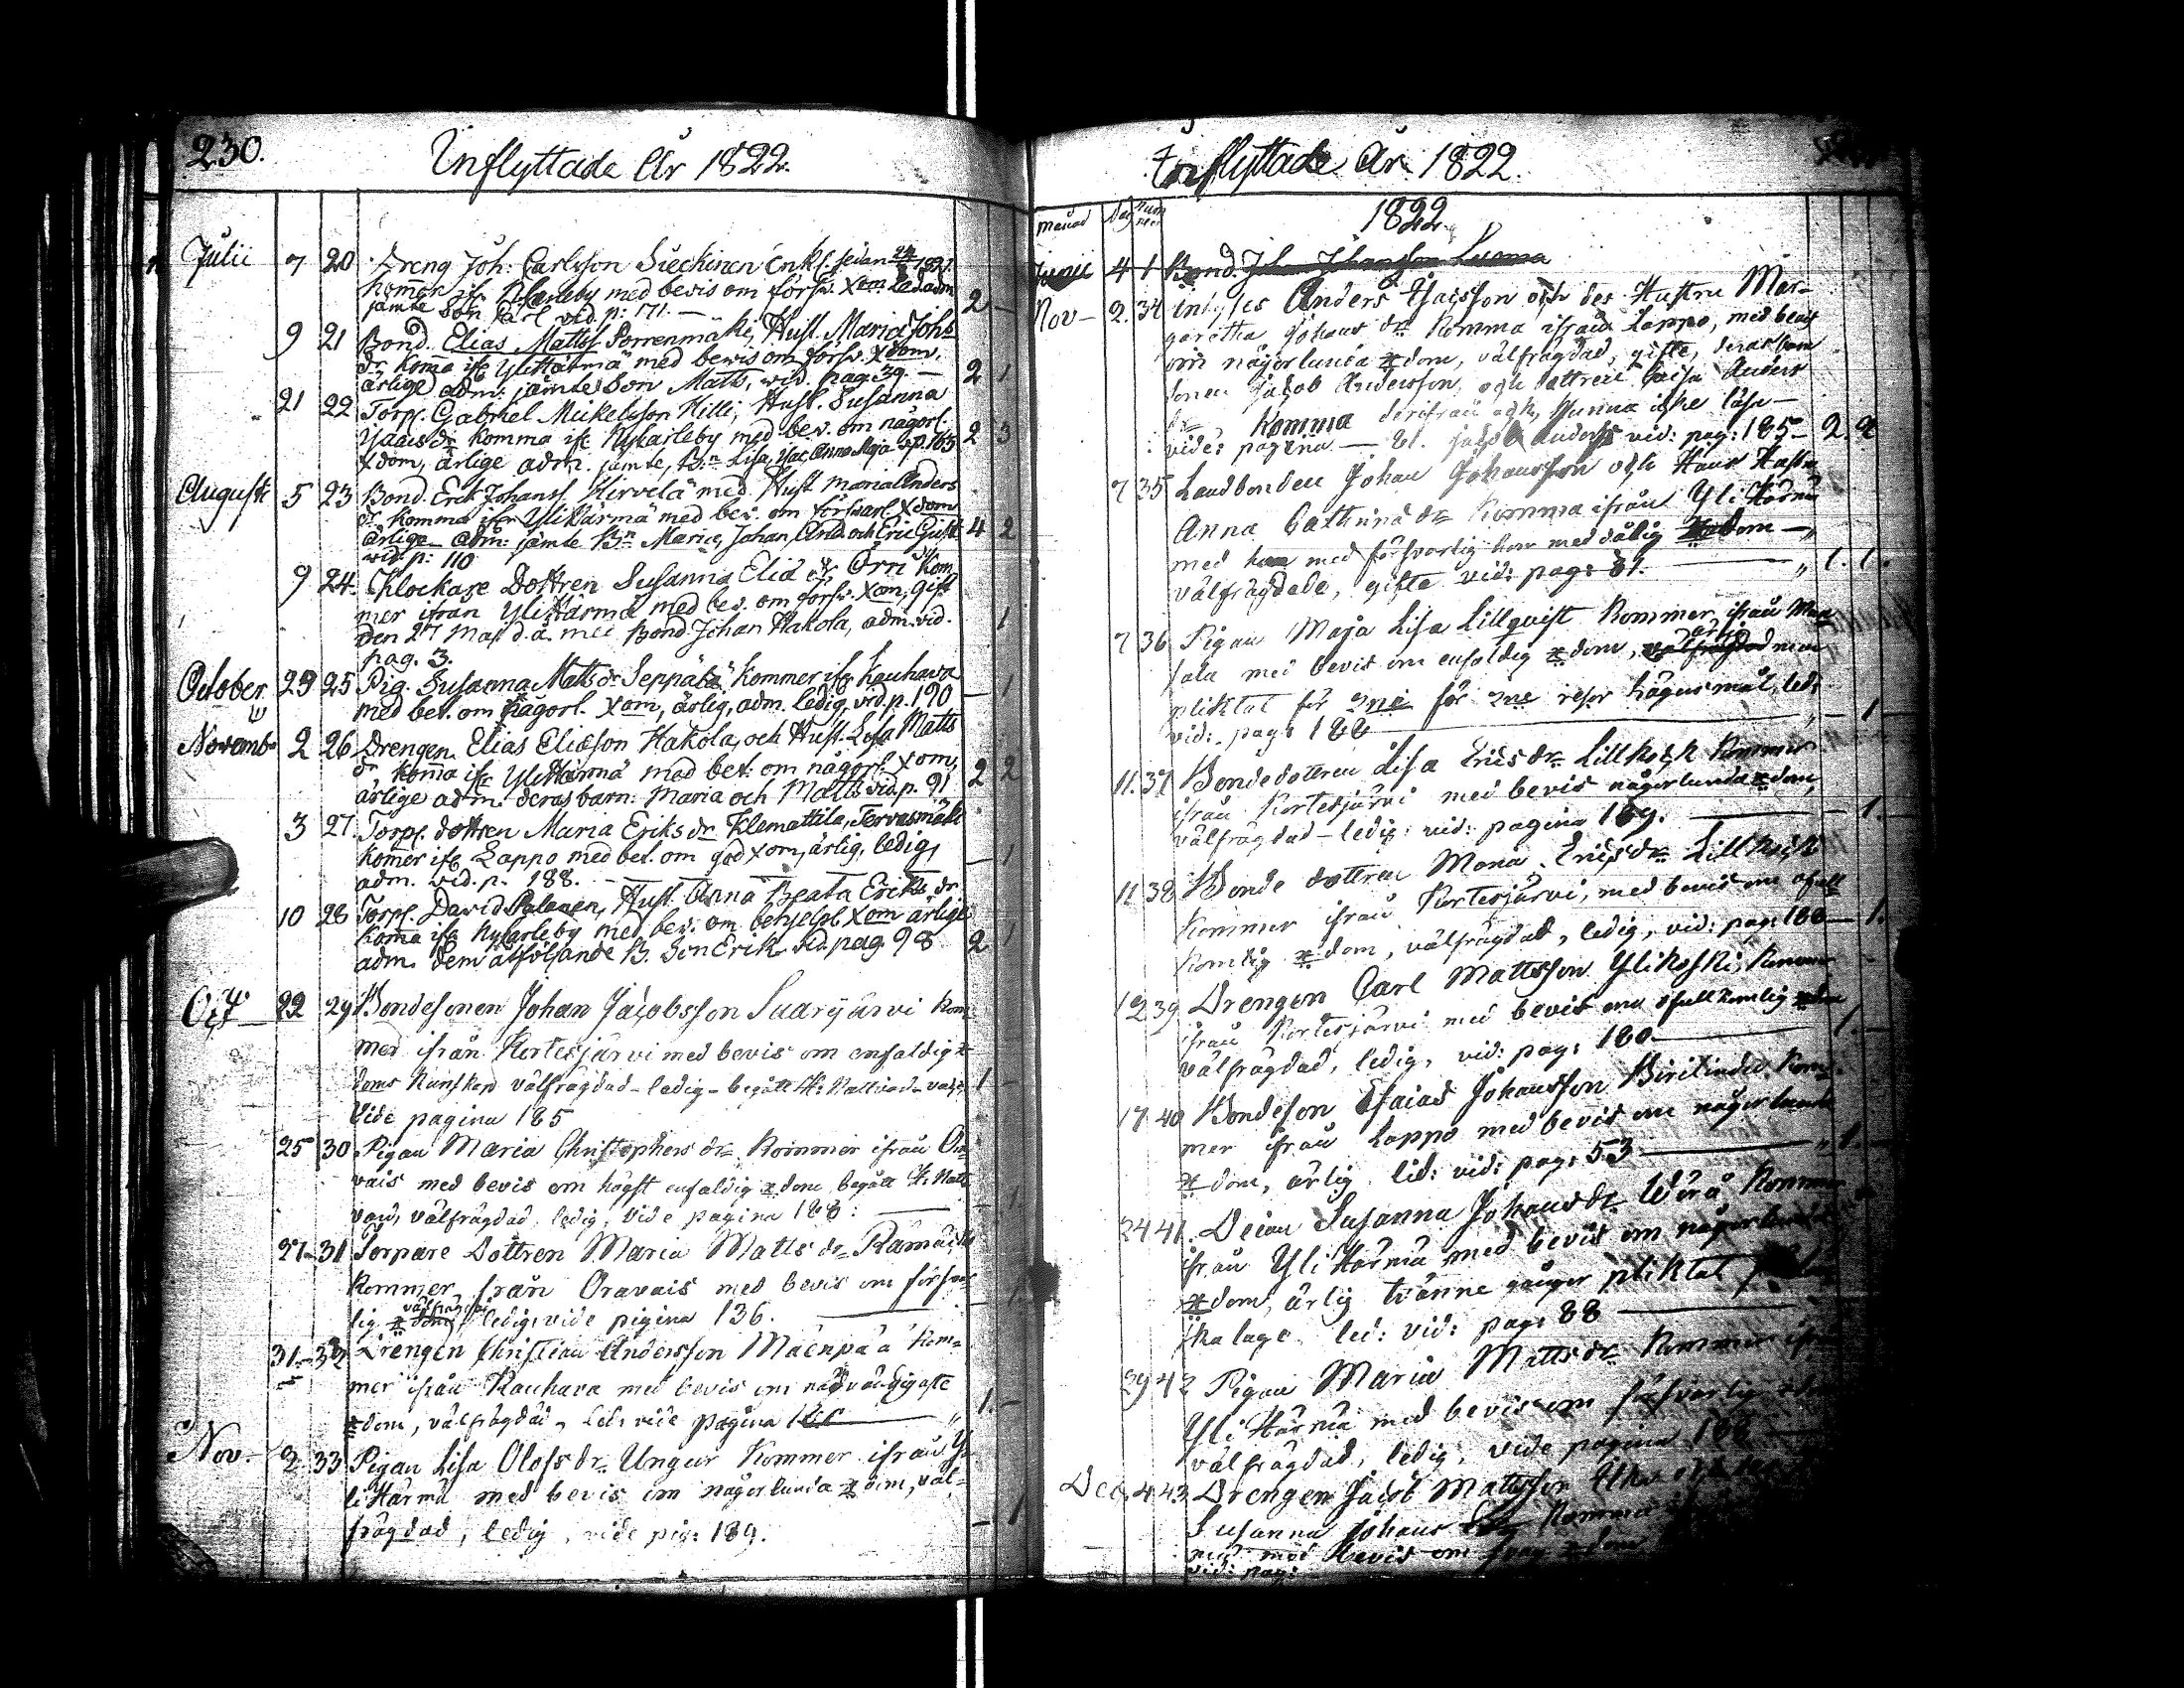 230.
Inflyttade År 1822.
Julii 7 20 Dreng Joh: Carlsson Sieckinen Enkl. sedan 24/8 1821
kommer ifr. Nykarleby med bevis om förfsv. Xom Led. adm
jämte Son Karl vid. p: 171. — 2 —
9 21 Bond. Elias Mattss Porrenmäki, Hust. Maria Joh:s
dr komma ifr Ylihärmä med bevis om försv. Xdom,
ärlige adm: jämte Son Matts, vid. pag. 39. — 2 1
21 22 Torp. Gabriel Mickelsson Hilli, Hust. Susanna
Isacsdr komma ifr Nykarleby med bev. om någorl.
Xdom, ärlige adm. jämte, B:n Lisa, Isac, Anna Maja vp. 165 2 3
Augusti 5 23 Bond. Erik Johanss. Hirvelä med Hust Maria Anders
dr komma ifrn Ylihärmä med bev. om försvarl Xdom
ärlige adm: jämte B:n Maria, Johan, And. och Eric Gust 4 2
vid p: 110
9 24. Klockare Dottren Susanna Elia dr Orri kom
mer ifrån Yliharmä med bev. om försv. Xom, gift
den 27 Maji d.å. med Bond. Johan Hakola, adm. vid. 1
pag. 3.
October 29 25 Pig. Susanna Mattsdr Seppälä kommer ifr Kauhava
med bev. om någorl. Xom, ärlig, adm. ledig. vid. p. 190 — 1
Novemb. 2 26 Drengen Elias Eliasson Hakola, och Hust. Lisa Matts
dr komma ifr Yliharmä med bev: om någorl Xom,
ärlige adm. deras barn: Maria och Matts vid. p. 91 2 2
3 27. Torp. dottren Maria Eriksdr Klemattila, Tervasmäki
komer ifr Lappo med bev. om god Xom, ärlig, ledig,
adm. vid. p. 188. — 1
10 28 Torp. David Palanen, Hust. Anna Beata Eriks dr
komma ifr Nykarleby med bev. om behjelpl Xom ärlige
adm. dem åtföljande B. Son Erik. vid. pag. 98 2 1
Oct 22 29 Bondesonen Johan Jacobsson Suarijärvi kom-
mer ifrån Kortesjärvi med bevis om enfaldig X
doms kunskap välfrägdad – ledig – begått H: Nattvard
1 —
Vide pagina 185
25 30 Pigan Maria Christophersdr kommer ifrån Ora
vais med bevis om högst enfaldig Xdom begått H: Natt
vard, välfrägdad, ledig, vide pagina 188: — 1.
27 31 Torpare Dottren Maria Mattsdr Rämäckä
kommer från Oravais med bevis om försvar
lig Xdom, välfrägdad, ledig, vide pagina 136. — 1
31 32 Drengen Christian Andersson Mäenpää kom-
mer ifrån Kauhava med bevis om nödvändigaste
Xdom, välfrägdad, led: vide pagina — 1. —
Nov. 2 33 Pigan Lisa Olofsdr. Ungur kommer ifrån Y-
li Härmä med bevis om någorlunda Xdom, väl-
frägdad, ledig, vide pag: 189. — 1
Inflyttade År 1822.
månad Dag Num mer 1822
Junii 4 1 Bond. Johan Johansson Luoma
Nov — 2. 34 Inhyses Anders Isaisson och des Hustru Mar-
garetha Johansdr komma ifrån Lappo, med bevis
om någorlunda Xdom, välfrägdad, gifte, deras barn
sonen Jacob Andersson och dottren Caisa Anders
dr komma derifrån och kunna icke läsa —
vide: pagina — 81. Jacob Anderss vid: pag: 185 — 2. 2
7 35 Landbonden Johan Johansson och Hans Hustru
Anna Cathrina dr komma ifrån Yli Härmä
med han med försvarlig hon med dålig Xdom —
välfrägdade, gifte vid: pag: 81. — 1. 1.
7 36 Pigan Maja Lisa Lillqvist kommer ifrån Max
sala med bevis om enfaldig Xdom, ärlig välfrägdad men
pliktat för 2ne för 2ne resor lägersmål, led:
vid: pag: 188 — 1
11. 37 Bondedottren Lisa Ericsdr Lillkock kommer
ifrån Kortesjärvi med bevis någorlunda Xdom,
välfrägdad – ledig: vid: pagina 189. — 1.
11 38 Bonde dottren Maria Ericsdr Lillkock
kommer ifrån Kortesjärvi, med bevis om ofull
komlig Xdom, välfrägdad, ledig, vid: pag: 188 — 1.
12 39 Drengen Carl Mattsson Ylikoski kommer
ifrån Kortesjärvi med bevis om ofullkomlig Xdom
välfrägdad, ledig, vid: pag: 180 — 1. —
17 40 Bondeson Esaias Johansson kom-
mer ifrån Lappo med bevis om någorlunda
Xdom, ärlig. led: vid: pag: 53 — 1. —
24 41. Deian Susanna Johansdr Wörå kommer
ifrån Yli Härmä med bevis om någorlunda
Xdom, ärlig tvänne gånger pliktat
led: vid: pag: 88 —
29 42 Pigan Maria Mattsdr kommer ifrån
Yli Härmä med bevis om försvarlig Xdom
välfrägdad, ledig, vide pagina 188 —
Dec. 4 43 Drengen Jacob Mattsson och
Susanna Johans komma
med bevis om Xdom
vid: pag: